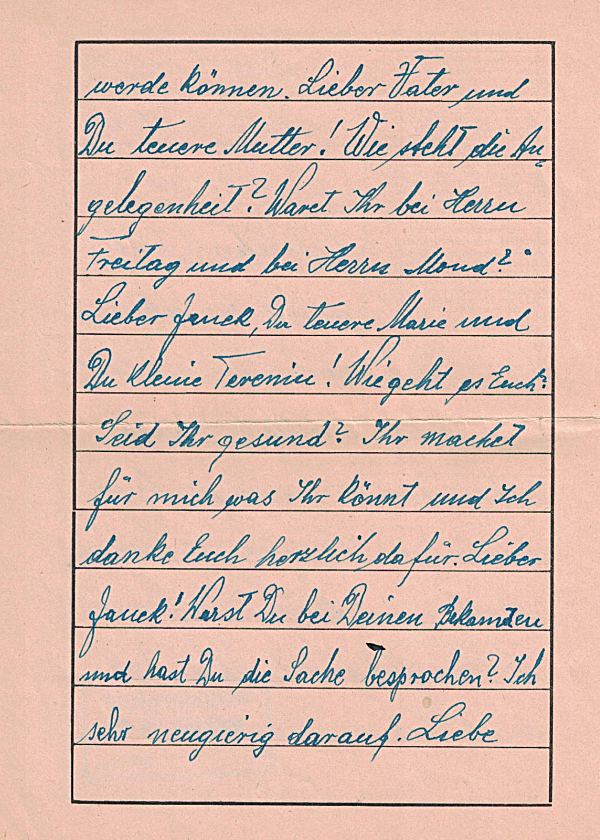 werde können. Lieber Vater und
Du teuere Mutter! Wie steht die An-
gelegenheit? Waret Ihr bei Herrn
Freitag und bei Herrn Mond?
Lieber Janek, Du teuere Marie und
Du kleine! Wie geht es Euch?
Seid Ihr gesund? Ihr machet
für mich was Ihr könnt und Ich
danke Euch herzlich dafür. Lieber
Janek! Warst Du bei Deinen Bekannten
und hast Du die Sache besprochen? Ich
sehr neugierig darauf. Liebe